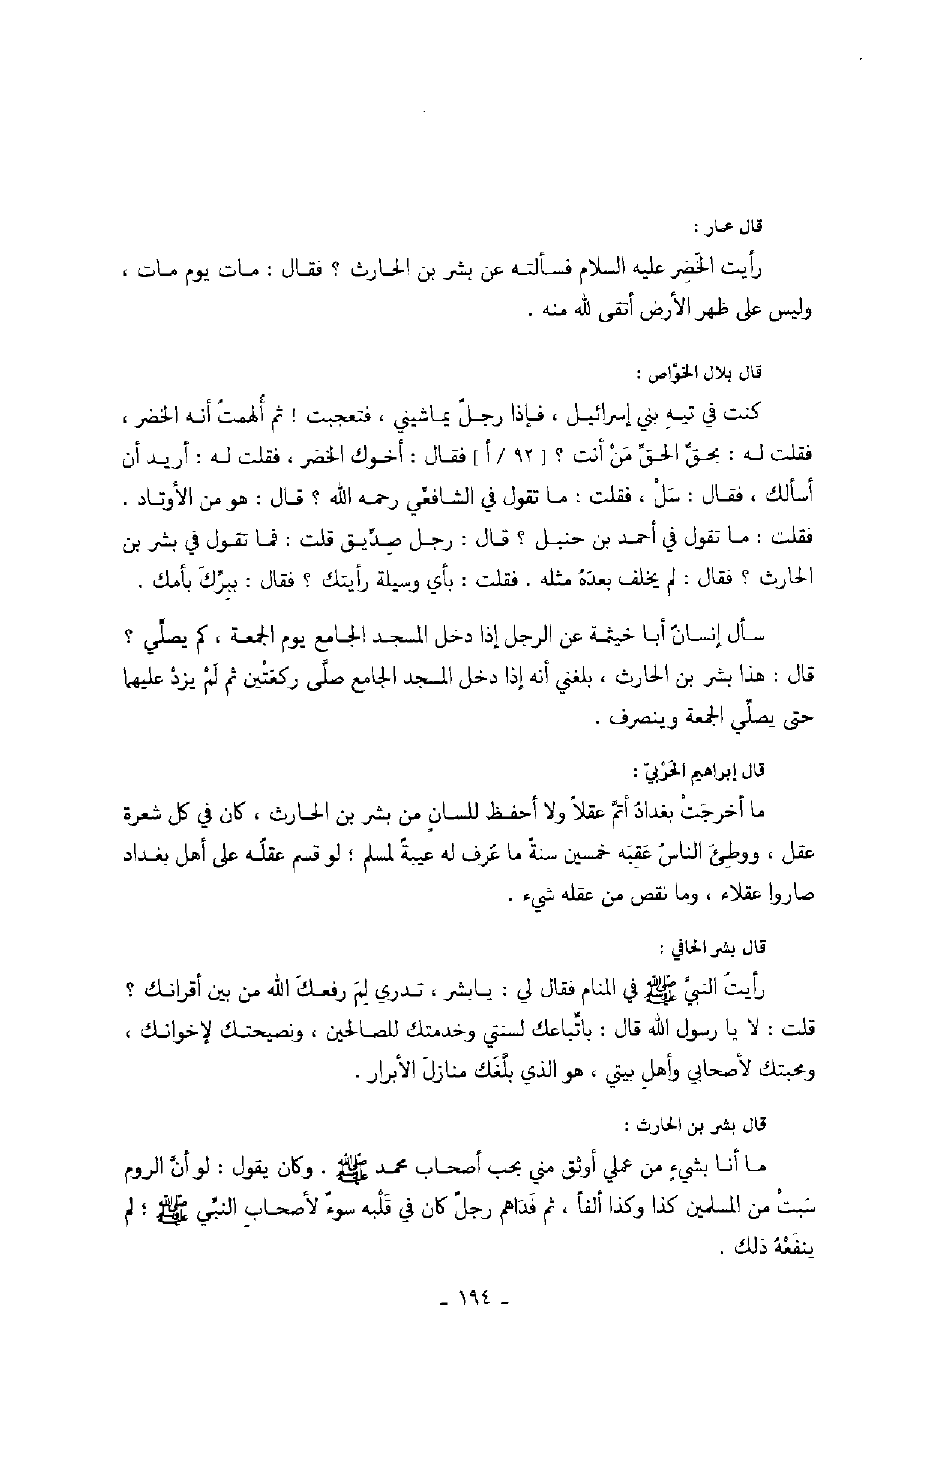 قال عمار :
رأيت الخَضِر عليه السلام فسألته عن بشر بن الحارث ؟ فقال : مات يوم مات ،
وليس على ظهر الأرض أتقى لله منه .
قال بلال الخوّاص :
كنت في تيه بني إسرائيل ، فإذا رجلٌ يماشيني ، فتعجبت ! ثم أُلهمتُ أنه الخضر ،
فقلت له : بحقِّ الحقِّ مَنْ أنت ؟ [ ٩٢ / أ ] فقال : أخوك الخضر ، فقلت له : أريد أن
أسألك ، فقال : سَلْ ، فقلت : ما تقول في الشافعّي رحمه الله ؟ قال : هو من الأوتاد .
فقلت : ما تقول في أحمد بن حنبل ؟ قال : رجل صدّيق قلت : فما تقول في بشر بن
الحارث ؟ فقال : لم يخلف بعدَهُ مثله . فقلت : بأي وسيلة رأيتك ؟ فقال : ببِرِّكَ بأمك .
سأل إنسانٌ أبا خيثمة عن الرجل إذا دخل المسجد الجامع يوم الجمعة ، كم يصلّي ؟
قال : هذا بشر بن الحارث ، بلغني أنه إذا دخل المسجد الجامع صلَّى ركعَتْين ثم لَمْ يزدْ عليهما
حتى يصلّي الجمعة وينصرف .
قال إبراهيم الحَرْبيّ :
ما أخرجَتْ بغدادُ أتمَّ عقلاً ولا أحفظ للسانٍ من بشر بن الحارث ، كان في كل شعرة
عقل ، ووطِئَ الناسُ عَقِبَه خمسين سنةً ما عُرف له غيبةٌ لمسلم ؛ لو قسم عقلُه على أهل بغداد
صاروا عقلاء ، وما نقص من عقله شيء .
قال بشر الحافي :
رأيتُ النبيَّ ﷺ في المنام فقال لي : يابشر ، تدري لِمَ رفعكَ الله من بين أقرانك ؟
قلت : لا يا رسول الله قال : باتِّباعك لسنتي وخدمتك للصالحين ، ونصيحتك لإخوانك ،
ومحبتك لأصحابي وأهلِ بيتي ، هو الذي بلَّغَك منازلَ الأبرار .
قال بشر بن الحارث :
ما أنا بشيءٍ من عملي أوثق مني بحب أصحاب محمد ﷺ . وكان يقول : لو أنَّ الروم
سَبتْ من المسلمين كذا وكذا ألفاً ، ثم فَدَاهم رجلٌ كان في قَلْبه سوءٌ لأصحابِ النبِّي ﷺ ؛ لم
ينفَعْهُ ذلك .
- ١٩٤ -